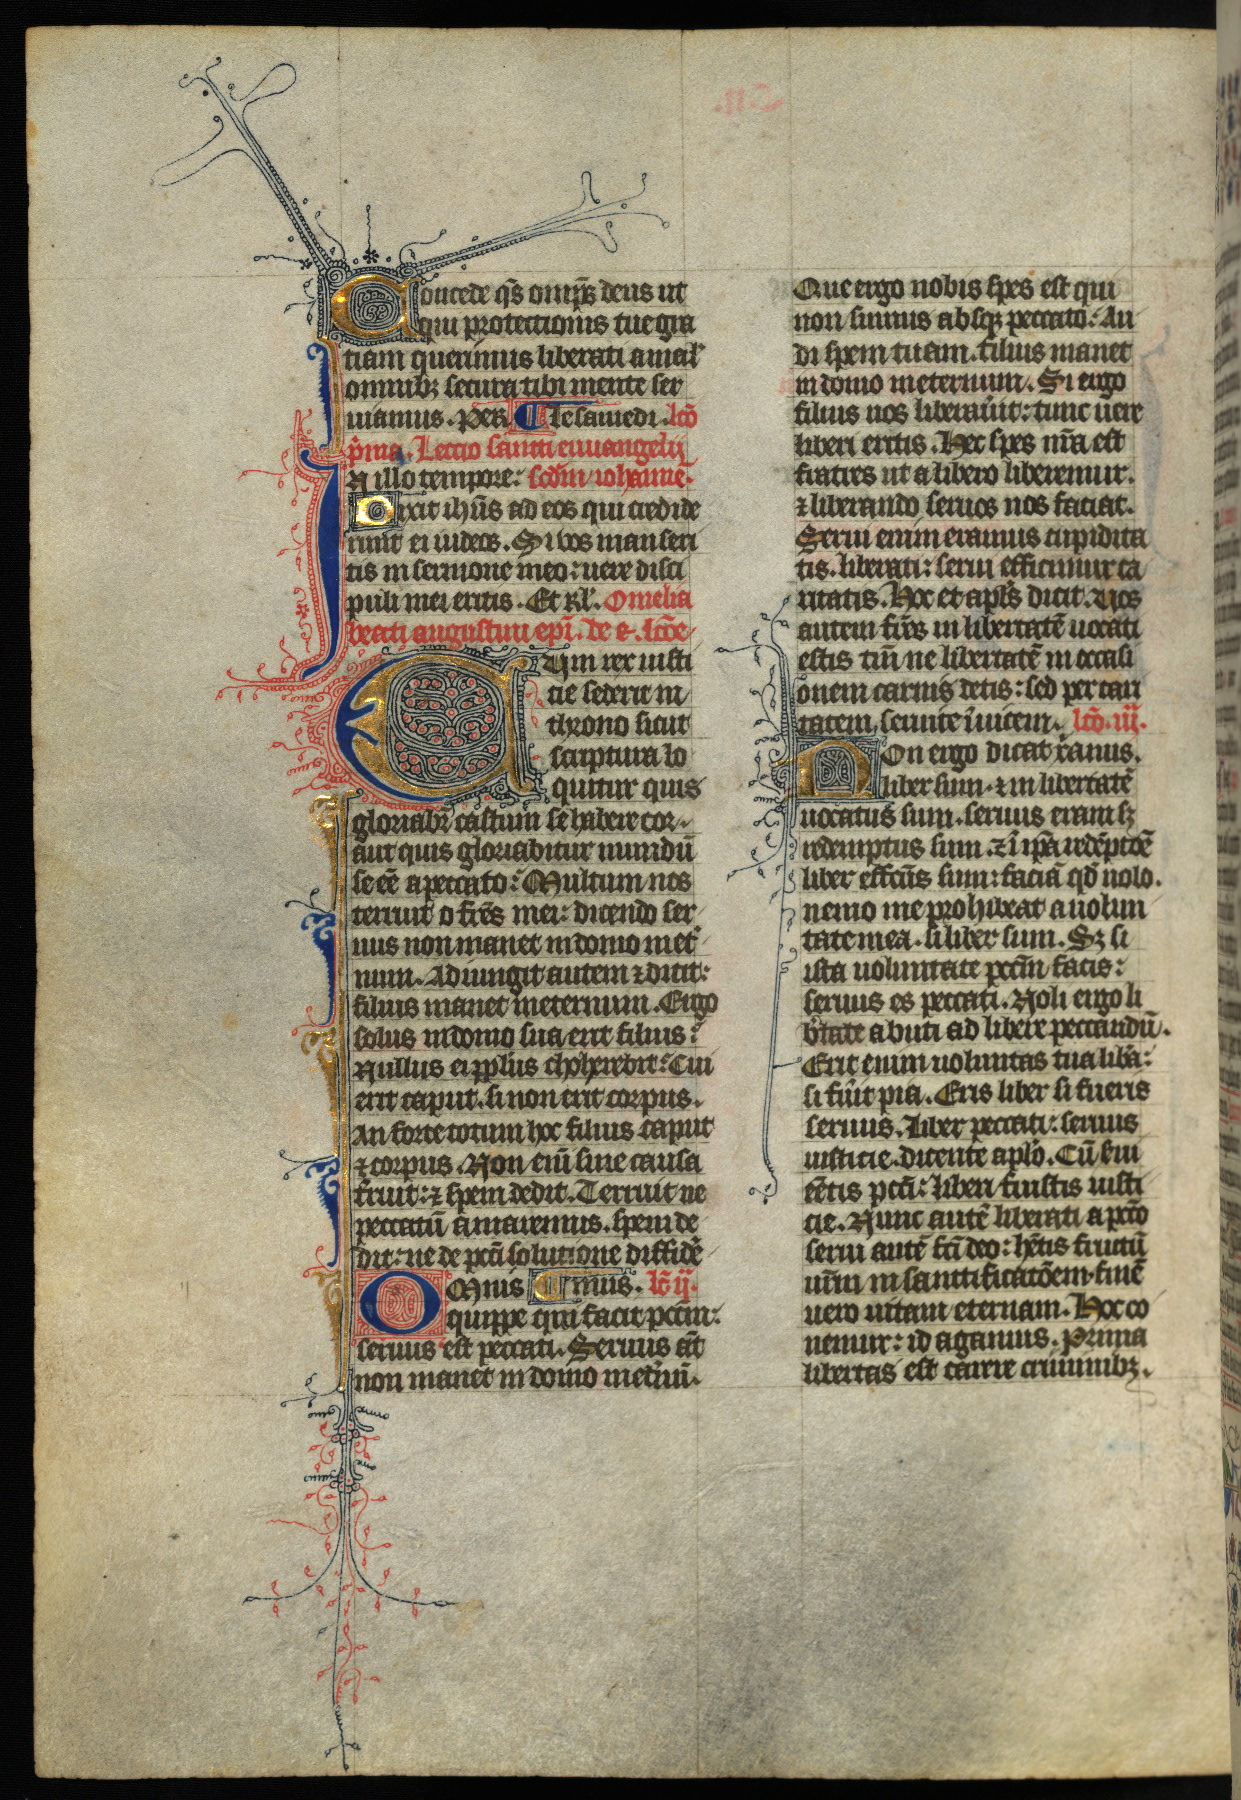 Concede q̄s om̄ps deus ut
qui protectionis tue gra
tiam querimus liberati a mal'
omnibꝫ secura tibi mente ser
uiamus. Per ¶ Te samedi. lcō
p̄ma. Lectio sancti euuangelij
In illo tempore: scd̄m iohanne᷑.
Dixit ih̄us ad eos qui credide
runt ei iudeos. Si uos manseri
tis in sermone meo: uere disci
puli mei eritis. Et Rl'. Omelia
beati augustini ep̄i. de e. lcōe
Cum rex iusti
cie sederit in
throno sicut
scriptura lo
quitur quis
gloriabr̄ castum se habere cor.
aut quis gloriabitur mundū
se eē a peccato: Multum nos
terruit o fr̄es mei: dicendo ser
uus non manet in domo met'
num. Adiungit autem ⁊ dicit:
filius manet in eternum. Ergo
solus in domo sua erit filius:
Nullus ei pp̄lus choherebit: Cui
erit caput. si non erit corpus.
An forte totum hoc filius caput
⁊ corpus. Non eni᷑ sine causa
t̄ruit: ⁊ spem dedit. Terruit ne
peccatū amaremus. spem de
dit: ne de pcc̄i solutione diffidē
Omnis ¶ mus. lc̄ ij.
quippe qui facit pccm̄:
seruus est peccati. Seruus aūt
non manet in domo met̄nū.
Que ergo nobis spes est qui
non sumus absqꝫ peccato: Au
di spem tuam. filius manet
in domo in eternum. Si ergo
filius uos liberau̓it: tunc uere
liberi eritis. Hec spes nr̄a est
fratres ut a libero liberemur.
⁊ liberando seruos nos faciat.
Serui enim eramus cupidita
tis. liberati: serui efficimur ca
ritatis. Hoc et apl̄s dicit. Uos
autem fr̄es in libertatē uocati
estis tm̄ ne libertatē in occasi
onem carnis detis: sed per cari
tatem seruite inuicem. lcō. iij.
Non ergo dicat xp̄anus.
liber sum. ⁊ in libertatē
uocatus sum. seruus eram sꝫ
redemptus sum. ⁊ ī ip̄a redēptōē
liber effcūs sum: faciā qd̄ uolo.
nemo me prohibeat a uolun
tate mea. si liber sum. Sꝫ si
ista uoluntate pccm̄ facis:
seruus es peccati. Noli ergo li
b̓tate abuti ad libere peccandū.
Erit enim uoluntas tua lib̓a:
si fu̓it pia. Eris liber si fueris
seruus. Liber peccati: seruus
iusticie. dicente aplō. Cū s̓ui
eētis pcc̄i: liberi fuistis iusti
cie. Nunc autē liberati a pcc̄o
serui autē fc̄i deo: hētis fructū
ur̄m in sanctificatōem. finē
uero uitam eternam. Hoc co
nemur: id agamus. Prima
libertas est carere criminibꝫ.